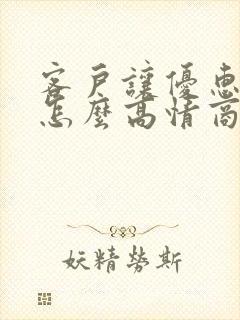 客戶讓優惠
怎麼高情商
妖精勞斯